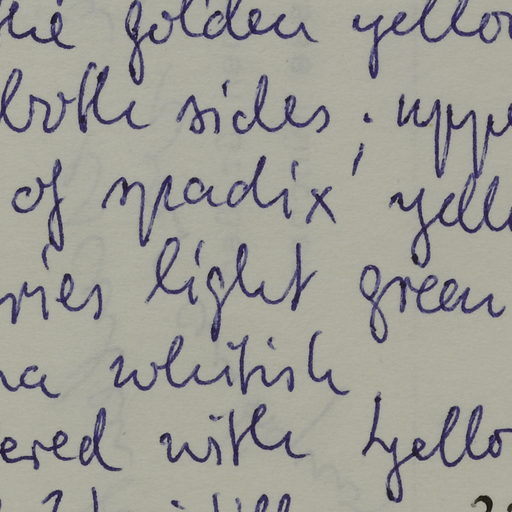 the golden yello
both sides; uppe
of spadix yell
ries light green
na whitish
ered with yello